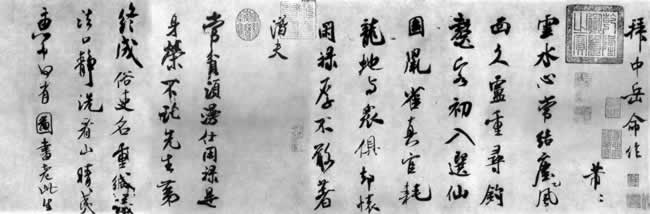 拜中岳命作
芾
雲水心常結塵風
面久盧重尋釣
鼇客初入選仙
圖鼠雀真官耗
龍虵与衆俱却懷
閑祿厚不敢著
潛夫
常貧須漫仕閑祿是
身榮不託先生第
終成俗吏名重緘議
法口靜洗看山睛夷
惠中何有圖書老此生